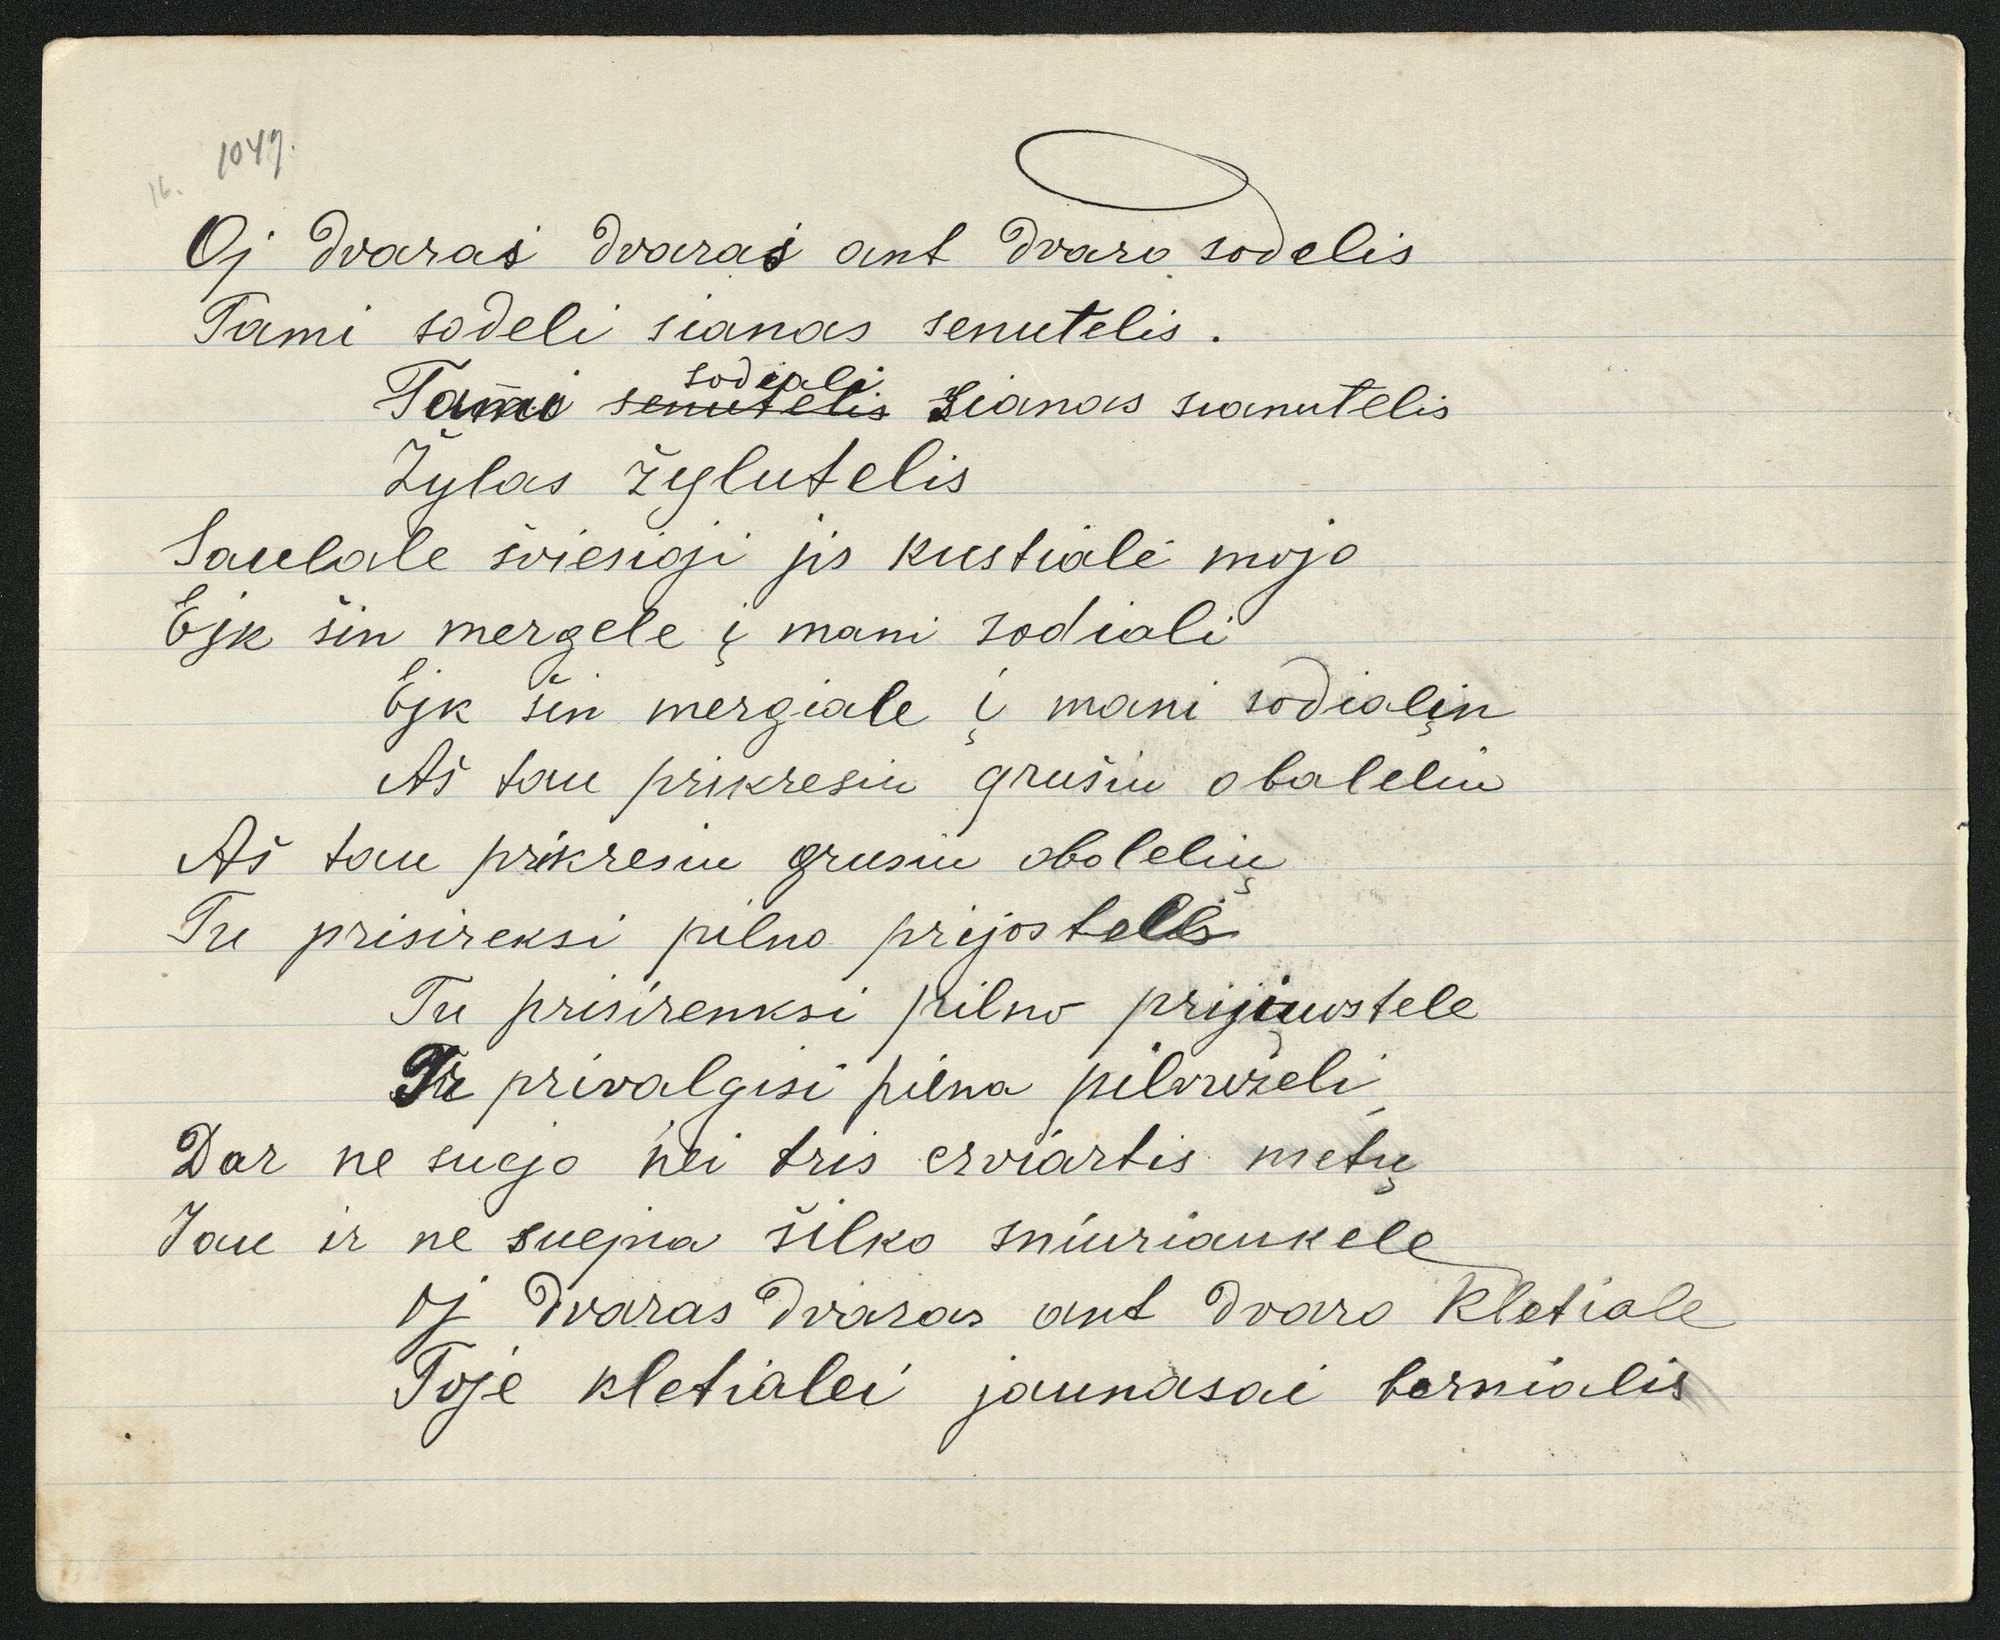 1049.
16.
Oj dvaras dvaras ant dvaro sodelis
Tami sodeli sianas senutelis.
Tami sodiali senutelis sianas sianutelis
Žylas žylutelis
Saulale šviesioji jis kustialė mojo
Ejk šin mergele į mani sodiali
Ejk šin mergiale į mani sodialįn
Aš tau prikresiu grušiu obaleliu
Aš tau prikresiu grusiu obolelių
Tu prisireksi pilno prijostelė
Tu prisirenksi pilno prijųostele
Tu privalgisi pilna pilvuželi
Dar ne suejo nei tris erviartis metų
Jau ir ne suejna šilko sniuriaukele
Oj dvaras dvaras ant dvaro kletiale
Toje kletialei jaunasai bernialis